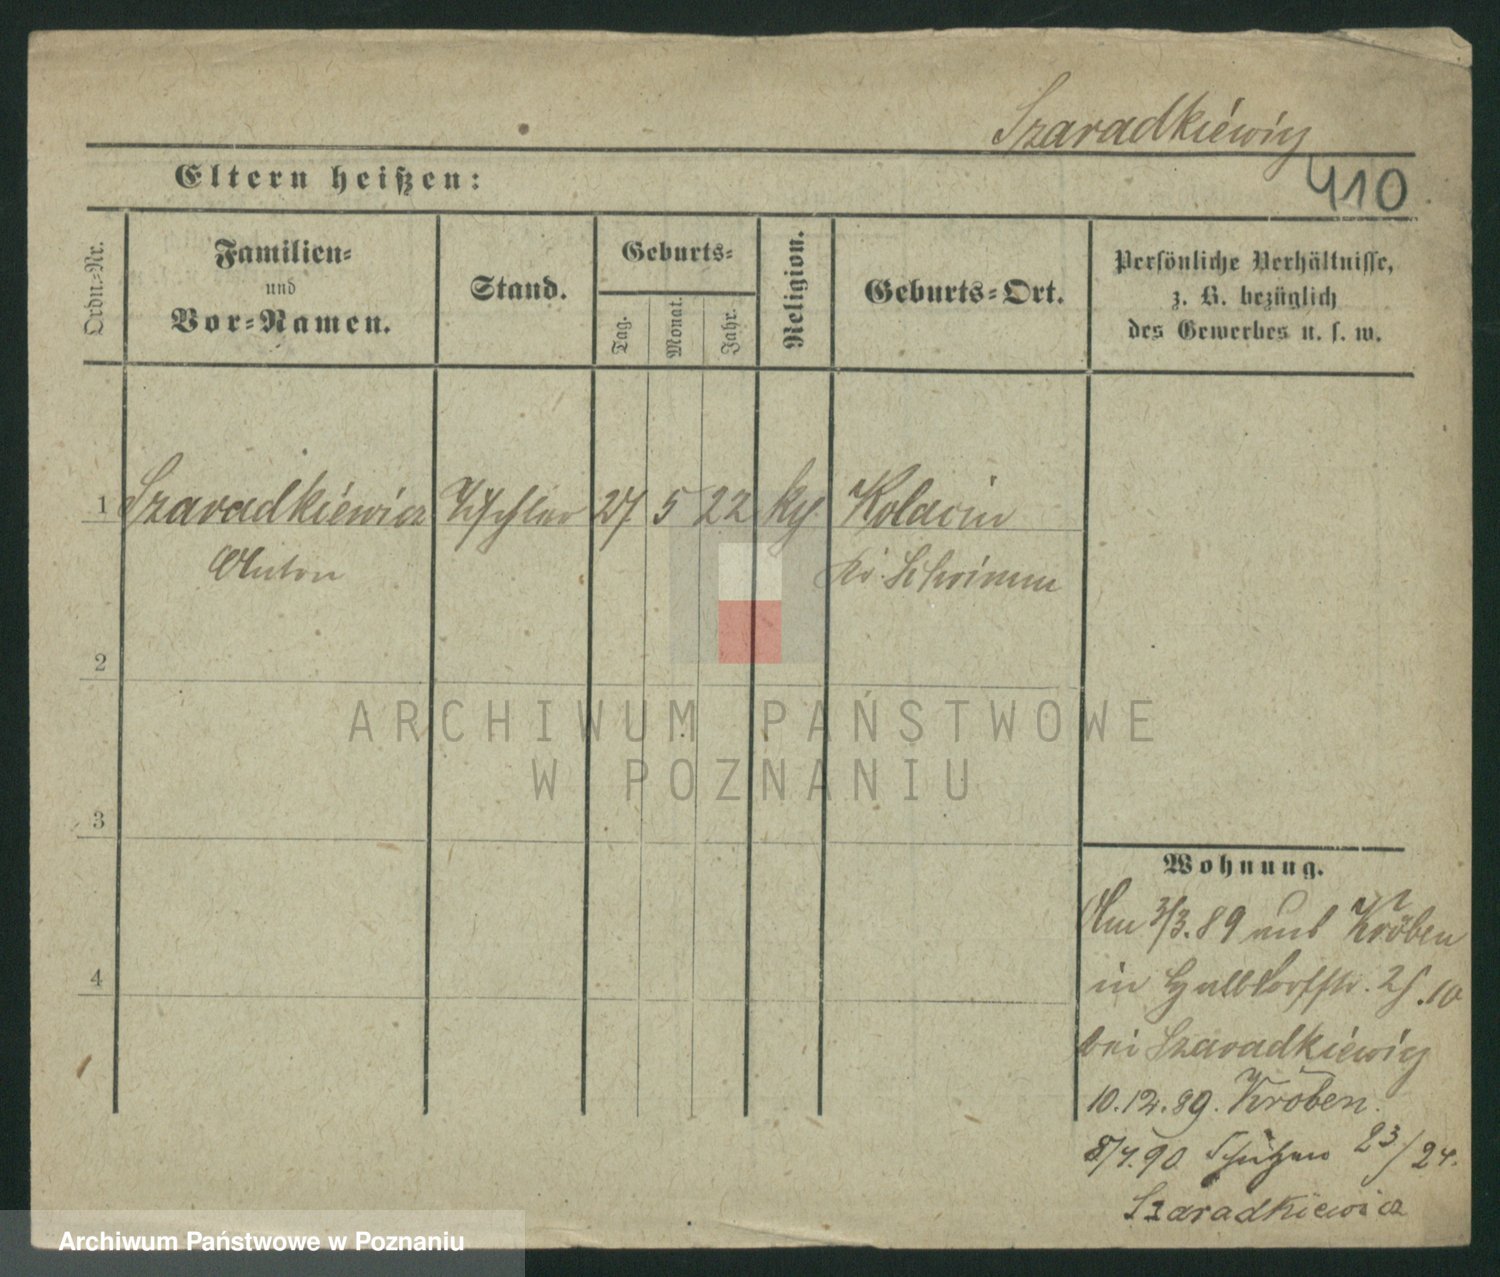 Szaradkiéwicz
410
Eltern heißen:
Ordn.-Nr.
Familien-
und
Vor-Namen.
Stand.
Geburts-
Tag.
Monat.
Jahr.
Religion.
Geburts-Ort.
Persönliche Verhältnisse,
z. B. bezüglich
des Gewerbes u. s. w.
1 Szaradkiéwicz Tischler 27 5 22 ka Kolacin
Anton Kr. Schrimm
2
ARCHIWUM PAŃSTWOWE
W POZNANIU
3
4
Wohnung.
Am 3/3. 89 aus Kröben
in Halbdorfstr. 25.10
bei Szaradkiéwicz
10.12.89. Kröben.
8/4.90 Schützen 23/24.
Szaradkiewicz
Archiwum Państwowe w Poznaniu